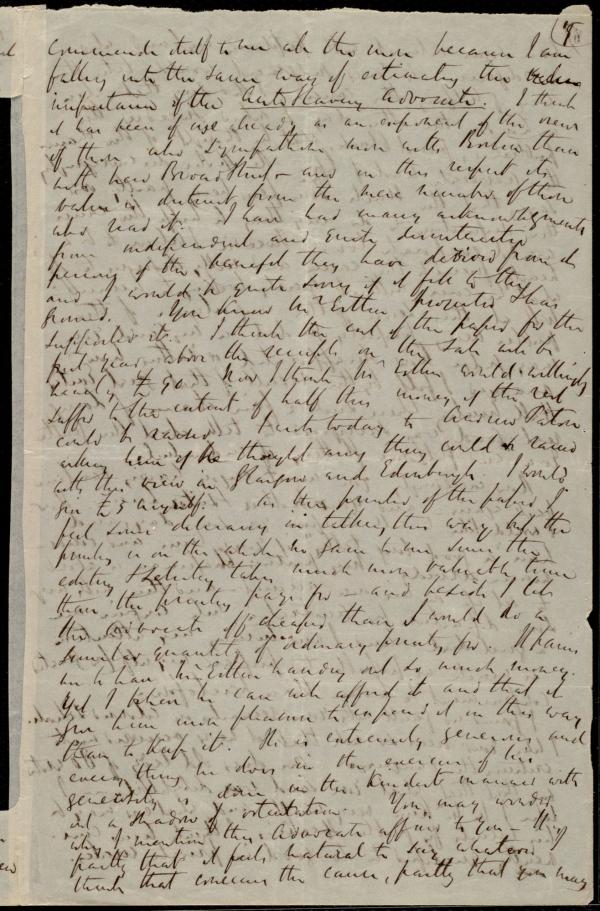 7
commends itself to me all the more because I am
falling into the same way of estimating the
importance of the Anti Slavery Advocate. I think
it has been of use already as an exponent of the views
of those who sympathise more with Boston than
with New Broad Street - and in this respect its
value is distinct from the mere number of those
who read it. I have had many acknowledgments
from independent and quite disinterested
persons of the benefit they have derived from it
and I would be quite sorry if it fell to the
ground. You know Mr Estlin
supports it. I think the cost of the paper for the
past year above the receipts on the sale will be
nearly £90. Now I think Mr Estlin would willingly
suffer to the extent of half this money if the rest
could be raised. I wrote today to Andrew Paton
asking him if he thought any thing could be raised
with this view in Glasgow and Edinburgh. I would
give £5 myself. As the printer of the paper I
feel some delicacy in
printing is on the while the same to me since the
editing &c takes much more valuable time
than the printing pays for - and beside I let
the Advocate off cheaper than I would do a
similar quantity of ordinary printing for. It pains
me to have Mr Estlin handing out so much money.
Yet I know he can well afford it and that it
give him more pleasure to expend it in this way
than to keep it. He is extremely generous and
every thing he does in the exercise of his
generosity is done in the kindest manner with
out a shadow of ostentation. You may wonder
why I mention this Advocate affair to you. It is
partly that it feels natural to say whatever
that concerns the cause, partly that you may